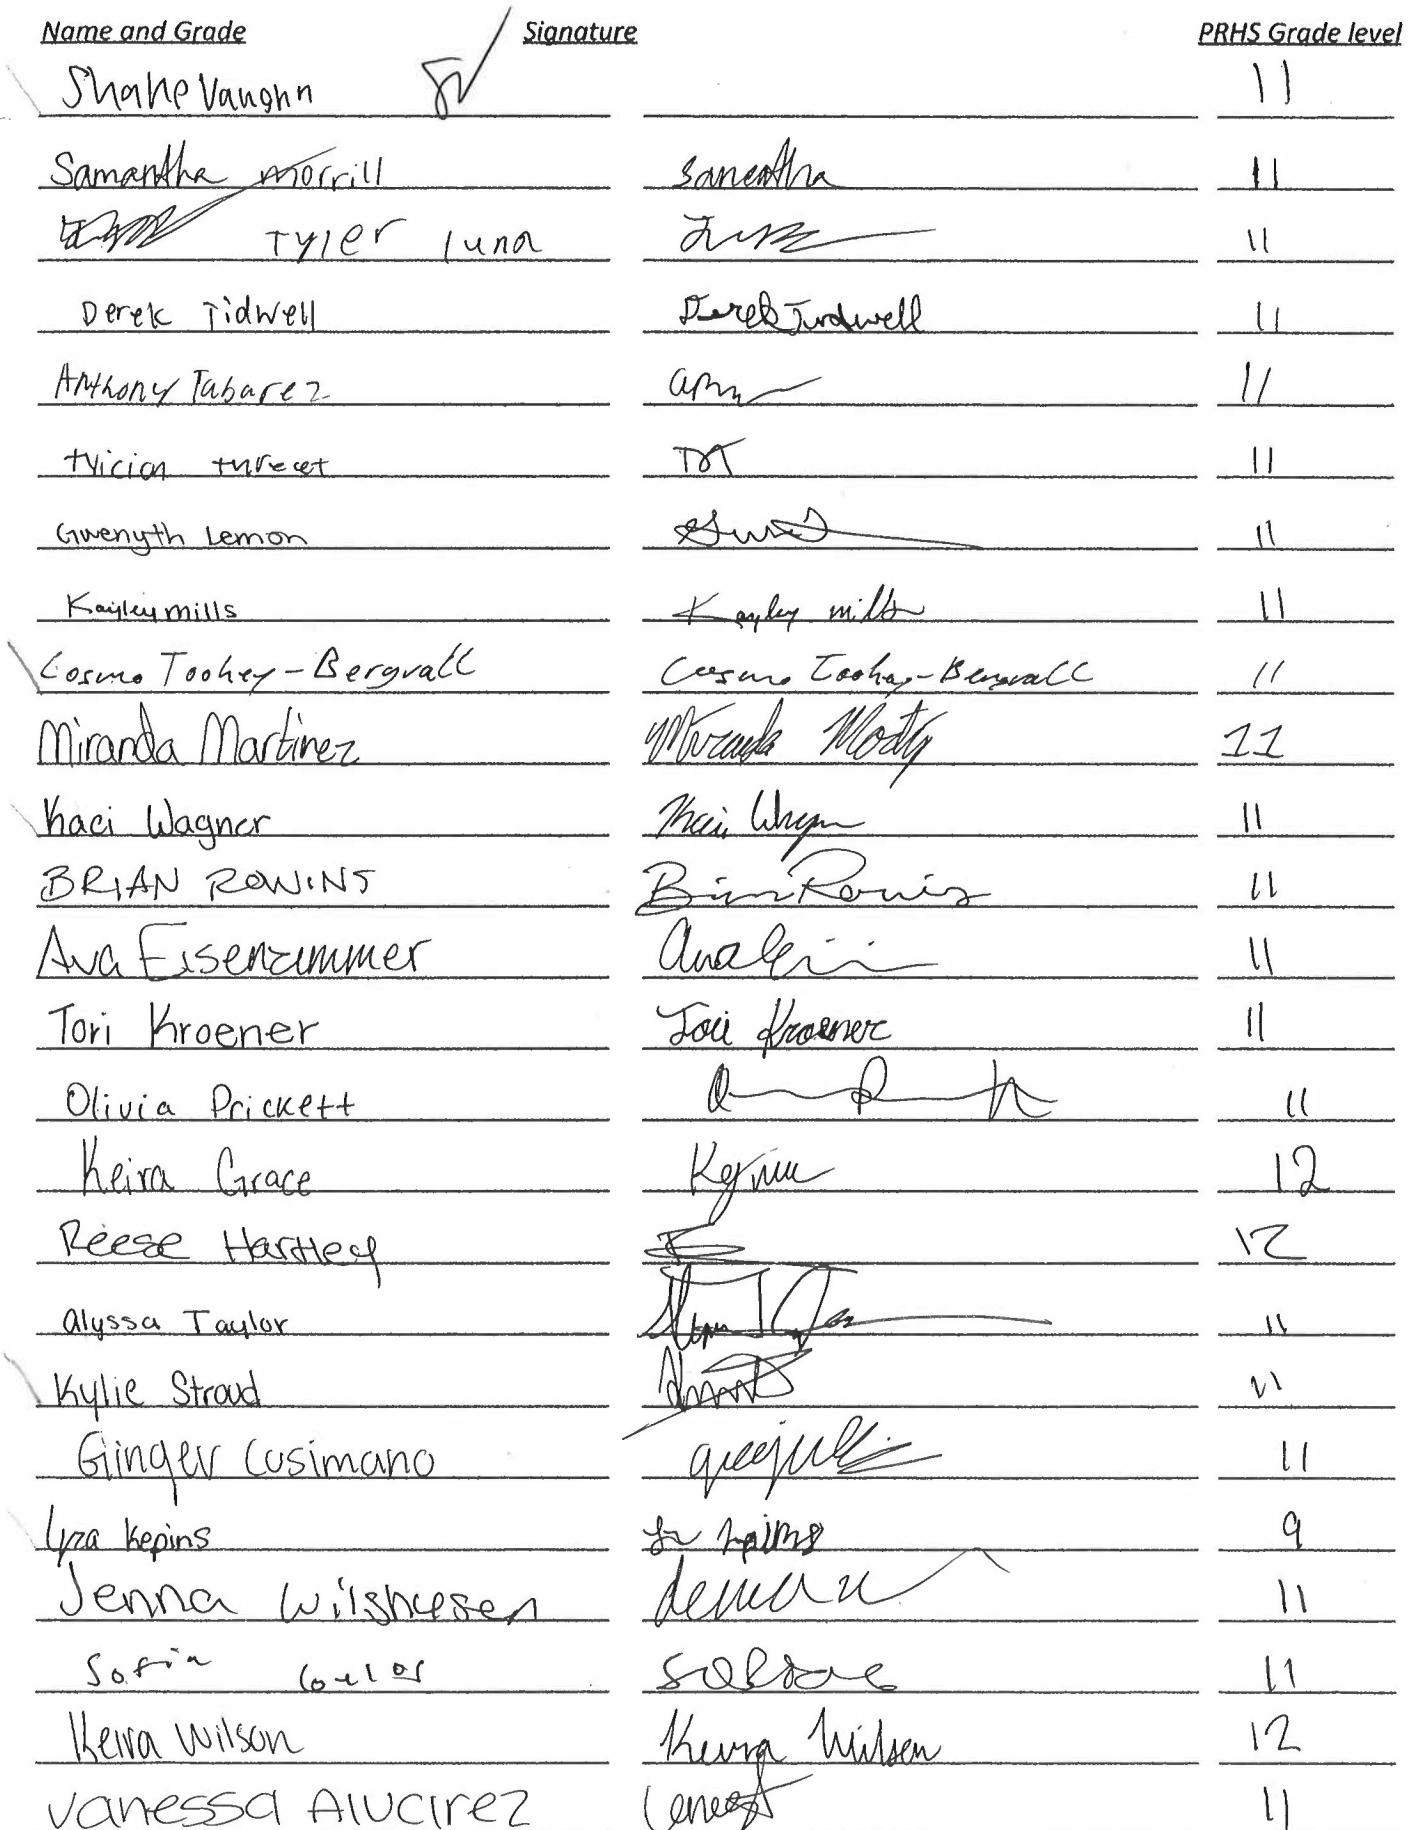 Name and Grade Signature PRHS Grade level
Shane Vaughn SV 11
Samantha Morrill Samantha 11
Tyler luna 11
Derek Tidwell Derek Tidwell 11
Anthony Tabarez 11
threet TDT 11
Gwenyth Lemon 11
Kayley mills Kayley mills 11
Cosmo Toohey-Bergvall Cosmo Toohey-Bergvall 11
Miranda Martinez Miranda 11
Kaci Wagner Kaci Wagner 11
BRIAN ROWINS Brian Rowins 11
Ava Eisenzimmer Ava 11
Tori Kroener Tori Kroener 11
Olivia Prickett 11
Keira Grace 12
Reese Hartley 12
Alyssa Taylor 11
Kylie Stroud 11
Ginger Cusimano 11
Lyza Kepins 9
Jenna Wilshusen 11
Sofia 11
Keira Wilson Keira Wilson 12
Vanessa Alvarez 11